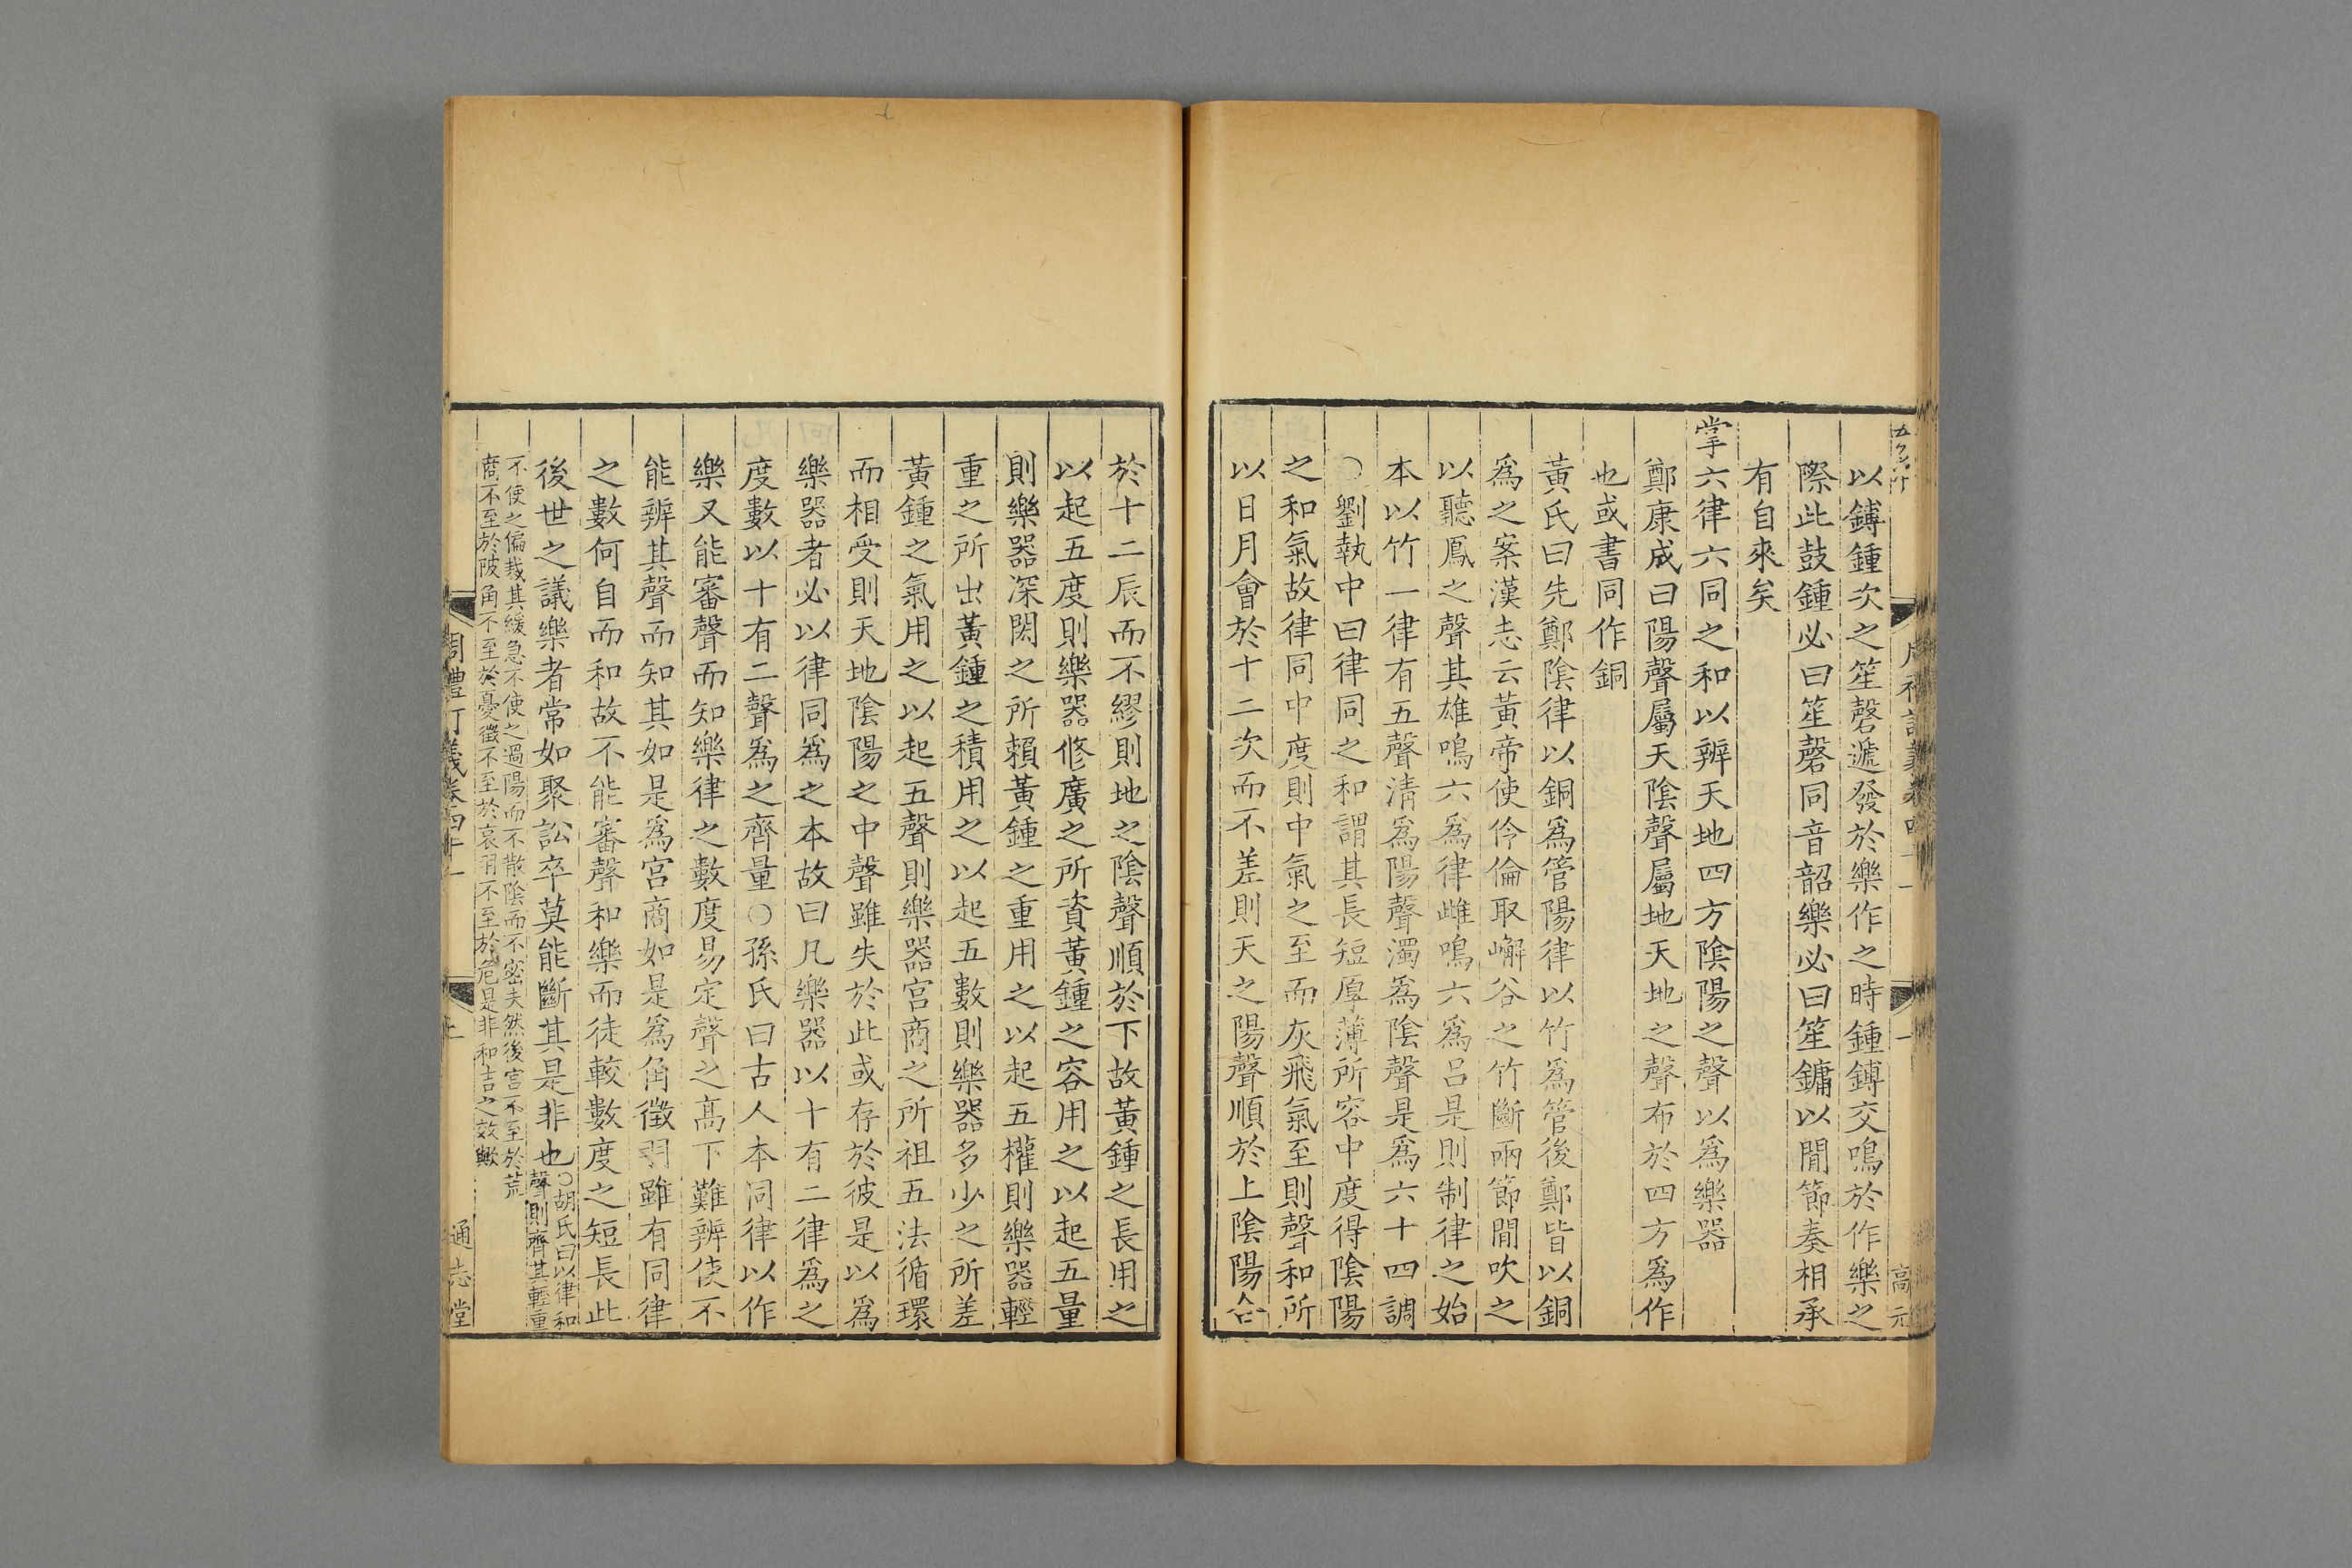 以鏄鍾次之笙磬遞發於樂作之時鍾鏄交鳴於作樂之
際此鼓鍾必曰笙磬同音韶樂必曰笙鏞以閒節奏相承
有自來矣
掌六律六同之和以辨天地四方陰陽之聲以爲樂器
鄭康成曰陽聲屬天陰聲屬地天地之聲布於四方爲作
也或書同作銅
黃氏曰先鄭陰律以銅爲管陽律以竹爲管後鄭皆以銅
爲之案漢志云黃帝使伶倫取嶰谷之竹斷兩節閒吹之
以聽鳳之聲其雄鳴六爲律雌鳴六爲呂是則制律之始
本以竹一律有五聲清爲陽聲濁爲陰聲是爲六十四調
○劉執中曰律同之和謂其長短厚薄所容中度得陰陽
之和氣故律同中度則中氣之至而灰飛氣至則聲和所
以日月會於十二次而不差則天之陽聲順於上陰陽合
高元
於十二辰而不繆則地之陰聲順於下故黃鍾之長用之
以起五度則樂器修廣之所資黃鍾之容用之以起五量
則樂器深閎之所賴黃鍾之重用之以起五權則樂器輕
重之所出黃鍾之積用之以起五數則樂器多少之所差
黃鍾之氣用之以起五聲則樂器宮商之所祖五法循環
而相受則天地陰陽之中聲雖失於此或存於彼是以爲
樂器者必以律同爲之本故曰凡樂器以十有二律爲之
度數以十有二聲爲之齊量○孫氏曰古人本同律以作
樂又能審聲而知樂律之數度易定聲之高下難辨使不
能辨其聲而知其如是爲宮商如是爲角徵羽雖有同律
之數何自而和故不能審聲和樂而徒較數度之短長此
後世之議樂者常如聚訟卒莫能斷其是非也○胡氏曰以律和
聲則齊其輕重
不使之偏裁其緩急不使之過陽而不散陰而不密夫然後宮不至於荒
商不至於陂角不至於憂徵不至於哀羽不至於危是非和吉之效歟
周禮訂義卷四十一
通志堂